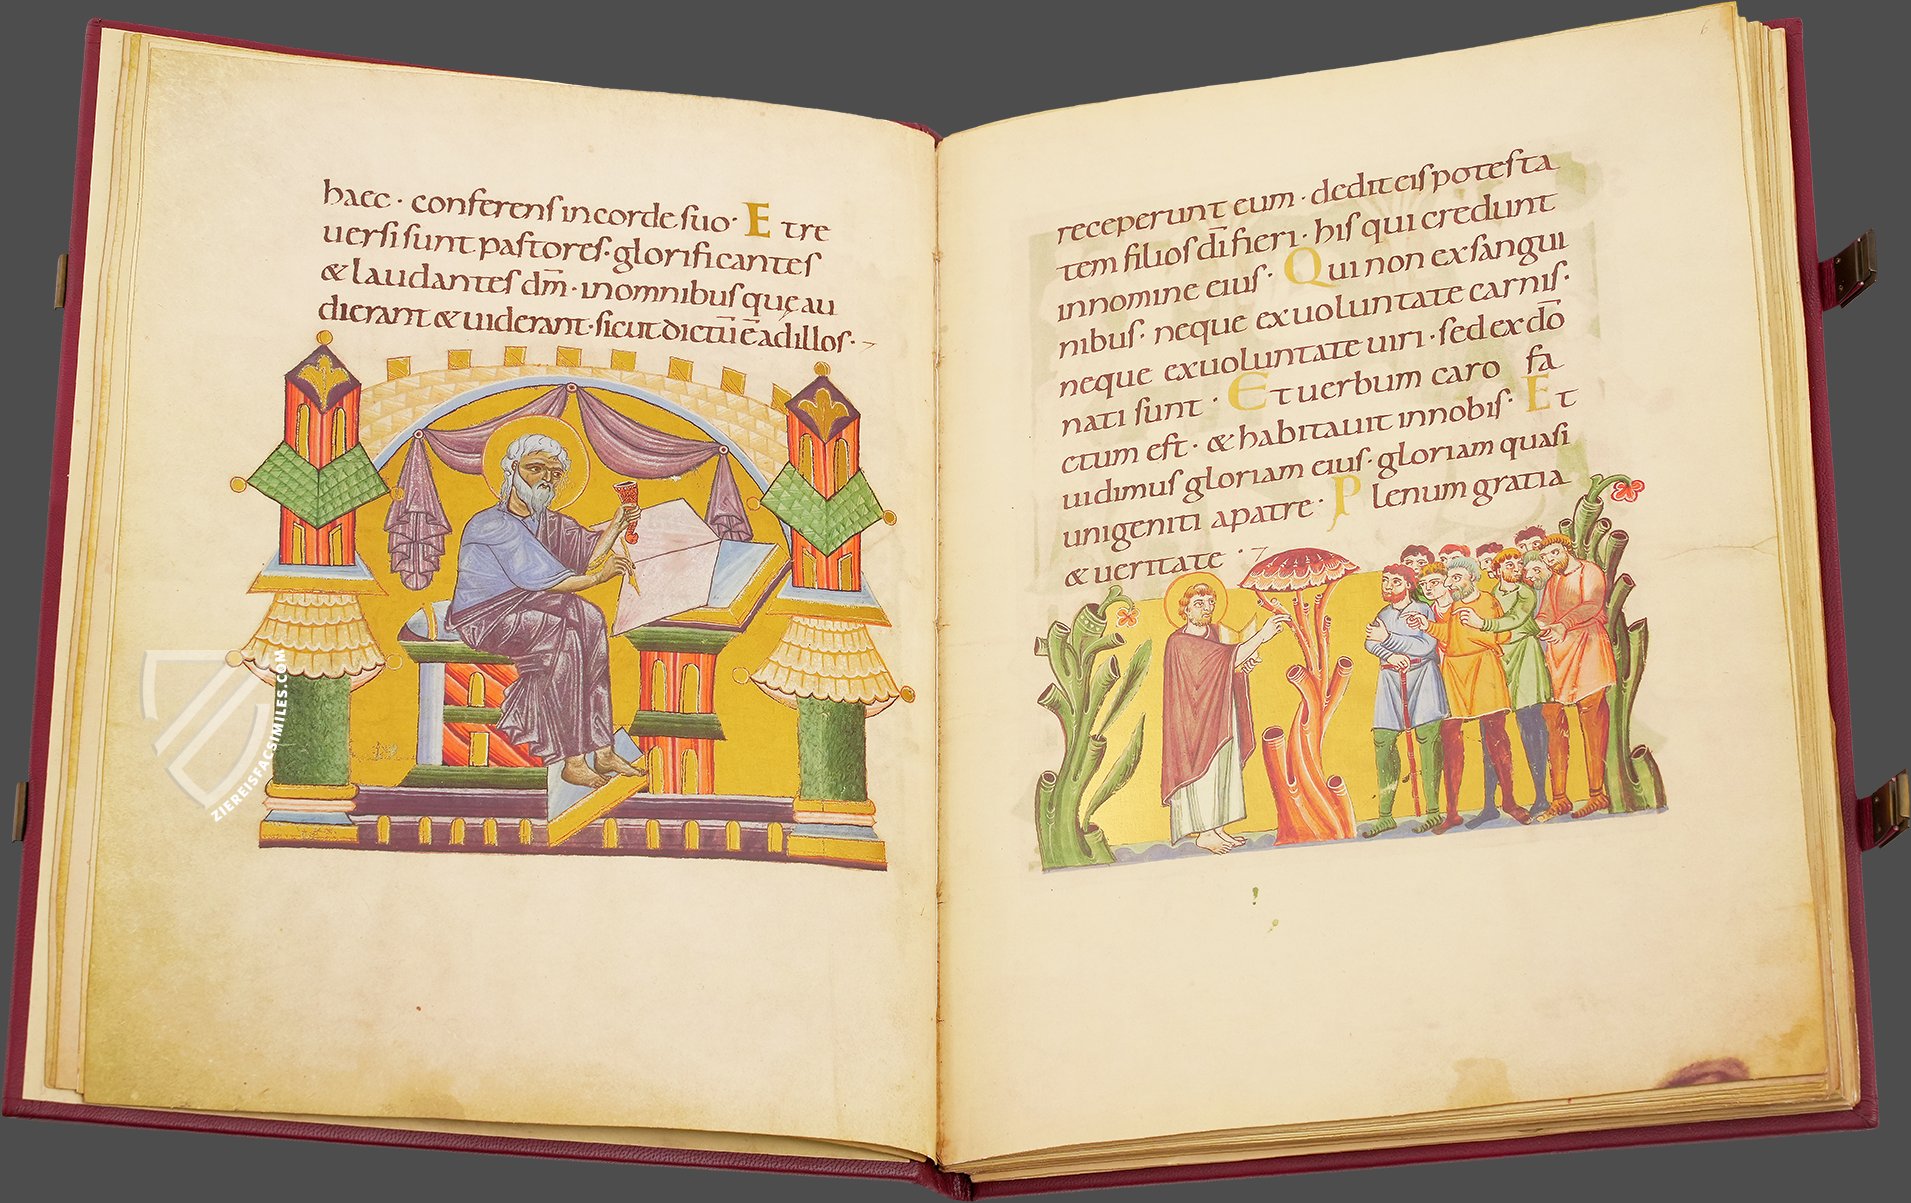 haec · conferens in corde suo · Et re
uersi sunt pastores · glorificantes
& laudantes dm̄ · in omnibus quę au
dierant & uiderant · sicut dictū ē ad illos ·
receperunt eum · dedit eis potesta
tem filios dī fieri · his qui credunt
in nomine eius · Qui non ex sangui
nibus · neque ex uoluntate carnis ·
neque ex uoluntate uiri · sed ex dō
nati sunt · Et uerbum caro fa
ctum est · & habitauit in nobis · Et
uidimus gloriam eius · gloriam quasi
unigeniti a patre · Plenum gratia
& ueritate ·
6
ZIEREISFACSIMILES.COM